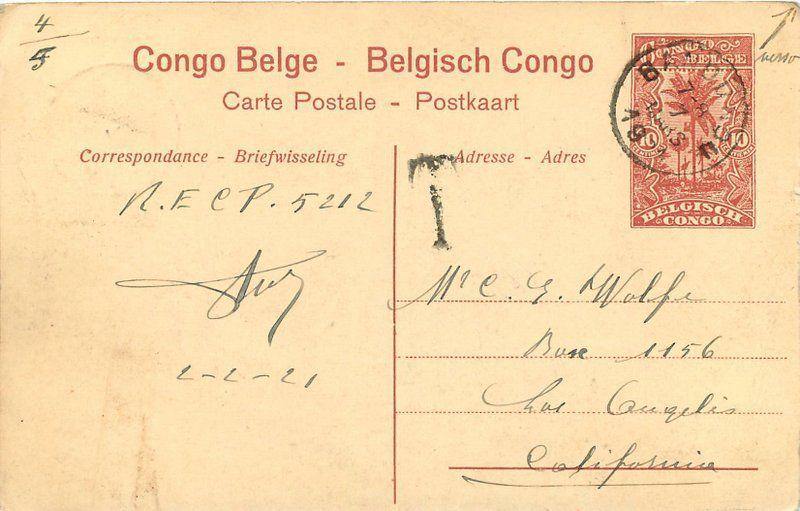 4
5
1
verso
Congo Belge - Belgisch Congo
Carte Postale - Postkaart
CONGO BELGE
10 10
BELGISCH
CONGO
Correspondance - Briefwisseling
Adresse - Adres
T
R.E C P. 5212
2-2-21
Mr C. E. Wolfe
Box 1156
Los Angelis
California